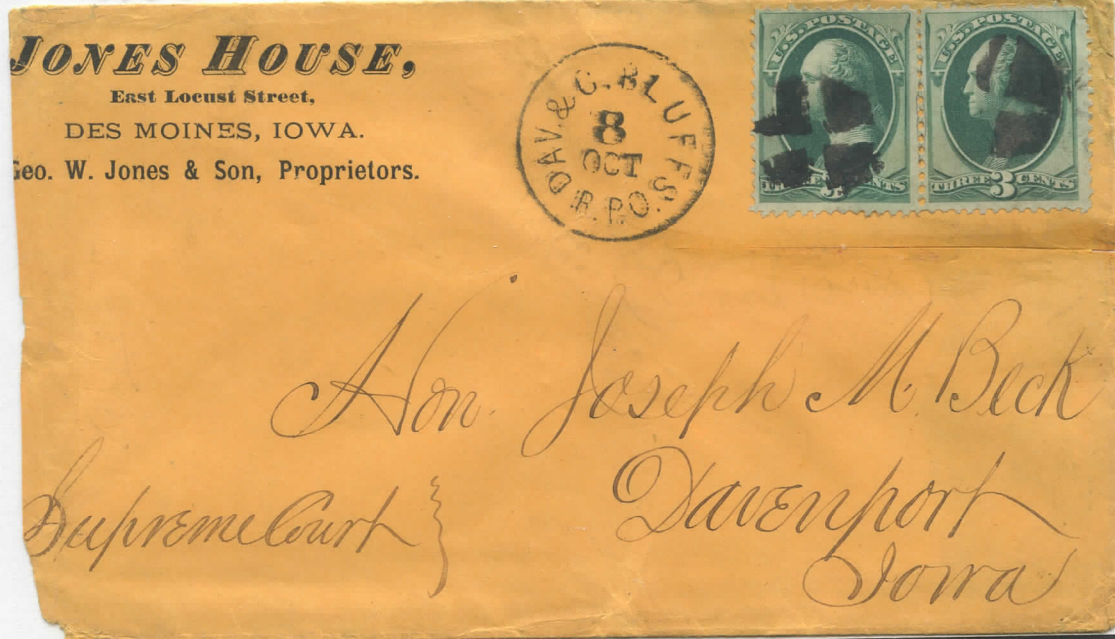 JONES HOUSE,
East Locust Street,
DES MOINES, IOWA.
Geo. W. Jones & Son, Proprietors.
DAV. & C. BLUFFS
8
OCT
R.P.O.
U.S. POSTAGE
THREE 3 CENTS
U.S. POSTAGE
THREE 3 CENTS
Hon. Joseph M. Beck
Davenport
Iowa
Supreme Court